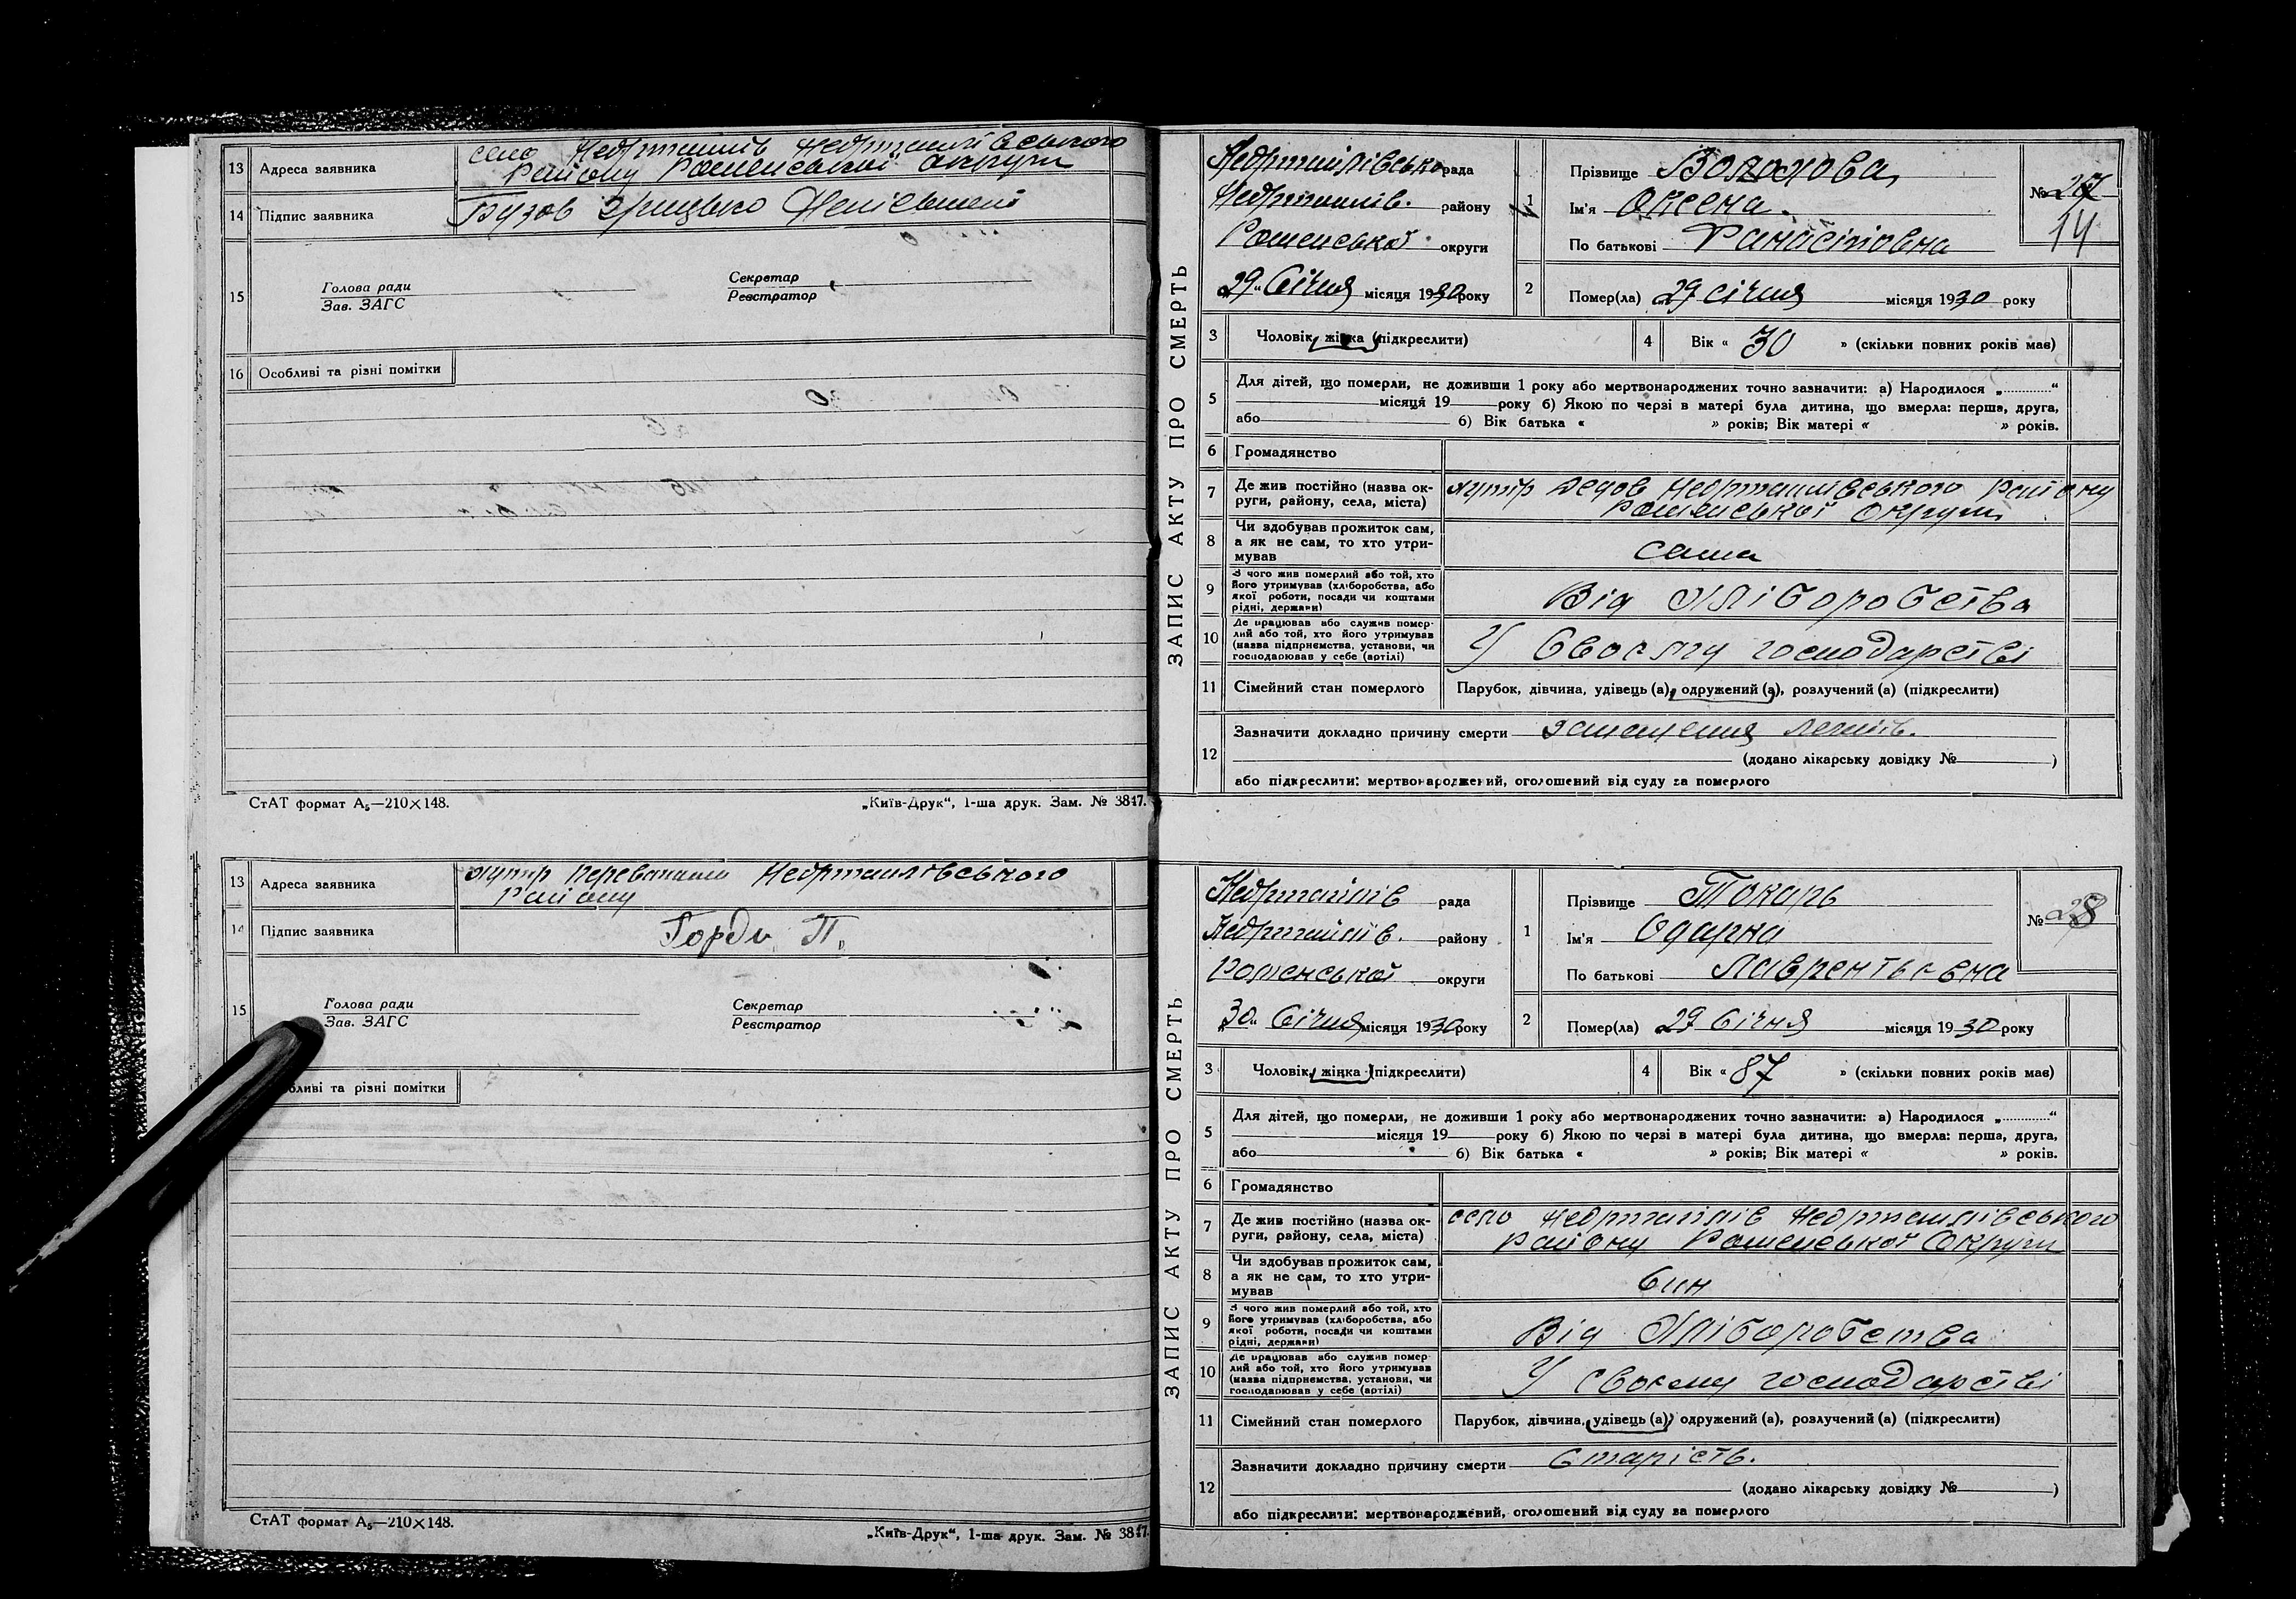 13 Адреса заявника село Недригайлів Недригайлівського
Району Роменської округи
14 Підпис заявника
15 Голова ради
Зав. ЗАГС
Секретар
Реєстратор
16 Особливі та різні помітки
СтАТ формат А₅—210×148.
„Київ-Друк“, 1-ша друк. Зам. № 3847.
13 Адреса заявника хутір Недригайлівського
Району
14 Підпис заявника
15 Голова ради
Зав. ЗАГС
Секретар
Реєстратор
та різні помітки
СтАТ формат А₅—210×148.
„Київ-Друк“, 1-ша друк. Зам. № 3847
ЗАПИС АКТУ ПРО СМЕРТЬ
Недригайлівсько рада
Недригайлів. району
Роменської округи
„29“ Січня місяця 1930 року
1 Прізвище
Ім'я Оксена
По батькові
№ 27
14
2 Помер(ла) „29 січня місяця 1930 року
3 Чоловік, жінка (підкреслити)
4 Вік « 30 » (скільки повних років має)
5 Для дітей, що померли, не доживши 1 року або мертвонароджених точно зазначити: а) Народилося „...........“
місяця 19 року б) Якою по черзі в матері була дитина, що вмерла: перша, друга,
або б) Вік батька « » років; Вік матері « » років.
6 Громадянство
7 Де жив постійно (назва округи, району, села, міста) хутір Недригайлівського Району
Роменської Округи
8 Чи здобував прожиток сам,
а як не сам, то хто утримував
сама
9 З чого жив померлий або той, хто
його утримував (хліборобства, або
якої роботи, посади чи коштами
рідні, держави)
Від хліборобства
10 Де працював або служив померлий або той, хто його утримував
(назва підприємства, установи, чи
господарював у себе (артілі)
У своєму господарстві
11 Сімейний стан померлого Парубок, дівчина, удівець (а), одружений (а), розлучений (а) (підкреслити)
12 Зазначити докладно причину смерти запалення легенів.
(додано лікарську довідку № )
або підкреслити: мертвонароджений, оголошений від суду за померлого
ЗАПИС АКТУ ПРО СМЕРТЬ
Недригайлів рада
Недригайлів. району
Роменської округи
„30“ Січня місяця 1930 року
1 Прізвище Токарь
Ім'я Одарка
По батькові Лаврентьевна
№ 28
2 Помер(ла) „29 Січня місяця 1930 року
3 Чоловік, жінка (підкреслити)
4 Вік « 87 » (скільки повних років має)
5 Для дітей, що померли, не доживши 1 року або мертвонароджених точно зазначити: а) Народилося „...........“
місяця 19 року б) Якою по черзі в матері була дитина, що вмерла: перша, друга,
або б) Вік батька « » років; Вік матері « » років.
6 Громадянство
7 Де жив постійно (назва округи, району, села, міста) село Недригайлів Недригайлівського
Району Роменської Округи
8 Чи здобував прожиток сам,
а як не сам, то хто утримував
Син
9 З чого жив померлий або той, хто
його утримував (хліборобства, або
якої роботи, посади чи коштами
рідні, держави)
Від Хліборобства
10 Де працював або служив померлий або той, хто його утримував
(назва підприємства, установи, чи
господарював у себе (артілі)
У своєму господарстві
11 Сімейний стан померлого Парубок, дівчина, удівець (а), одружений (а), розлучений (а) (підкреслити)
12 Зазначити докладно причину смерти Старість.
(додано лікарську довідку № )
або підкреслити: мертвонароджений, оголошений від суду за померлого